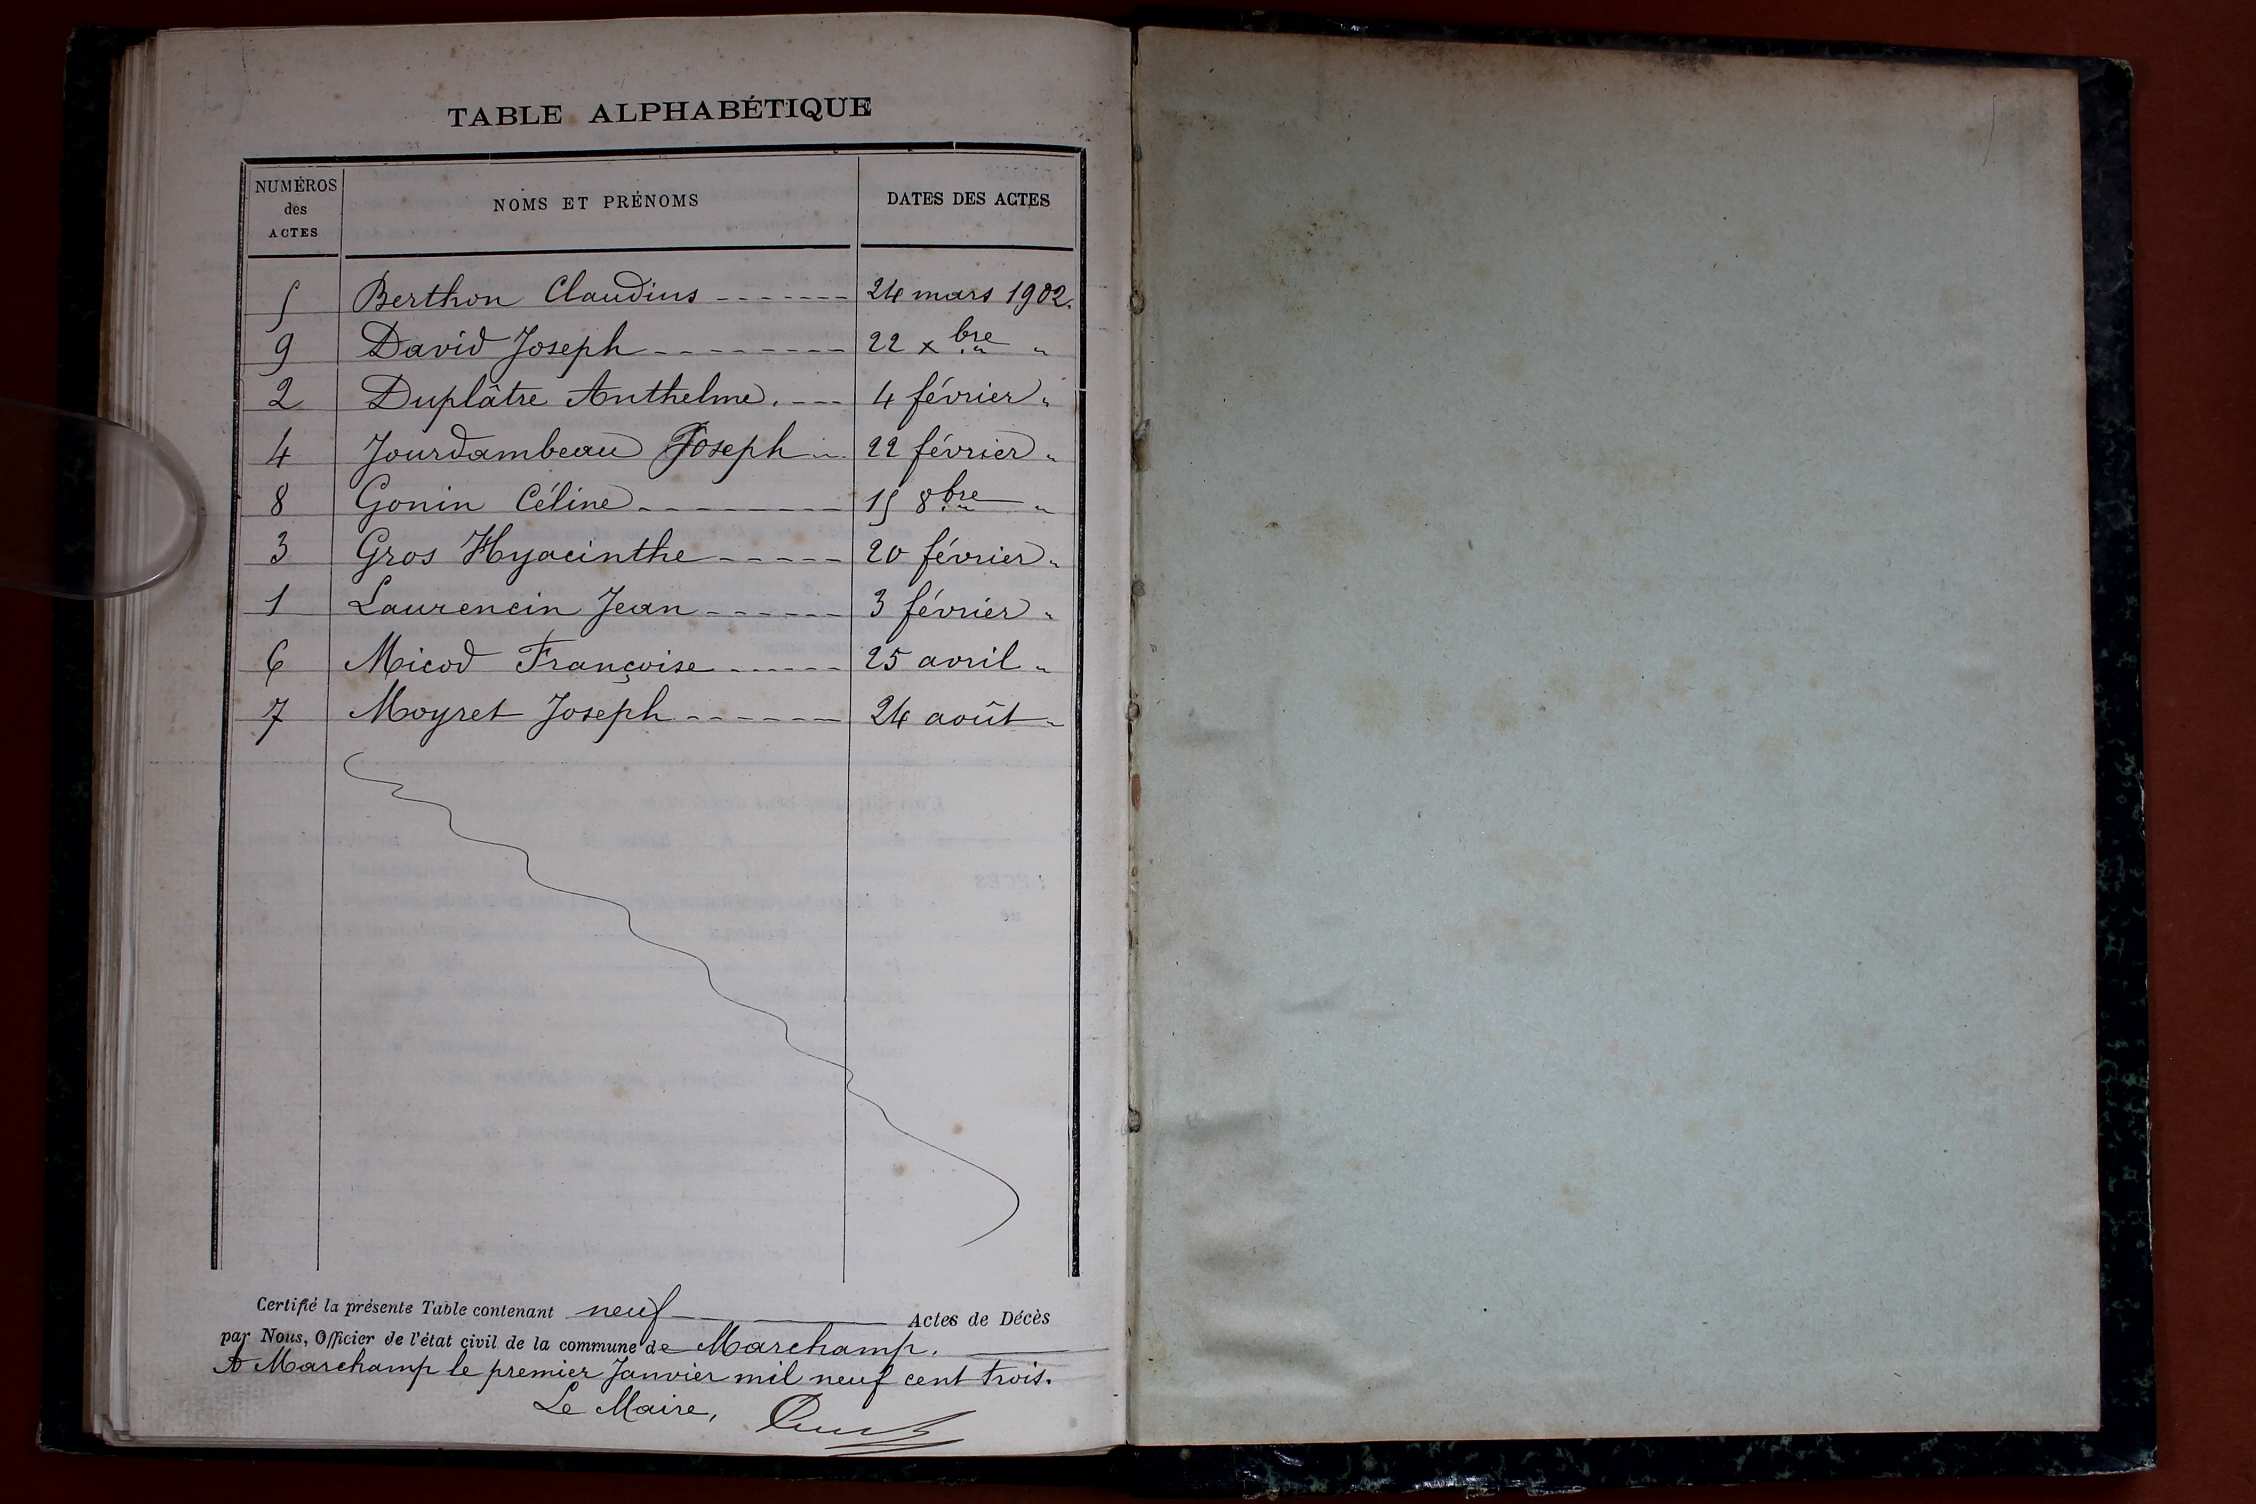 TABLE ALPHABÉTIQUE
NUMÉROS des ACTES NOMS ET PRÉNOMS DATES DES ACTES
5 Berthon Claudius - - - - - - - 24 mars 1902.
9 David Joseph - - - - - - - - 22 xbre "
2 Duplâtre Anthelme. - - - 4 février "
4 Jourdambeau Joseph - - 22 février "
8 Gonin Céline - - - - - - - - 15 8bre "
3 Gros Hyacinthe - - - - - 20 février "
1 Laurencin Jean - - - - - - 3 février "
6 Micod Françoise - - - - - - 25 avril "
7 Moyret Joseph - - - - - - 24 août "
Certifié la présente Table contenant neuf Actes de Décès
par Nous, Officier de l'état civil de la commune de Marchamp.
A Marchamp le premier Janvier mil neuf cent trois.
Le Maire,